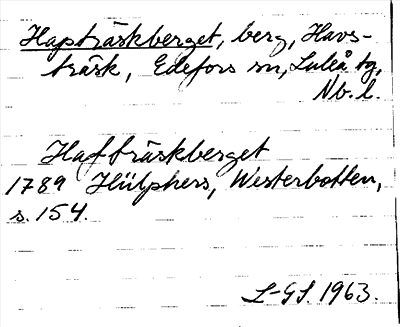 Hapträskberget, berg, Havs-
träsk, Edefors sn, Luleå tg,
Nb. l.
Hafträskberget
1789 Hülphers, Westerbotten,
s. 154.
L-GS. 1963.